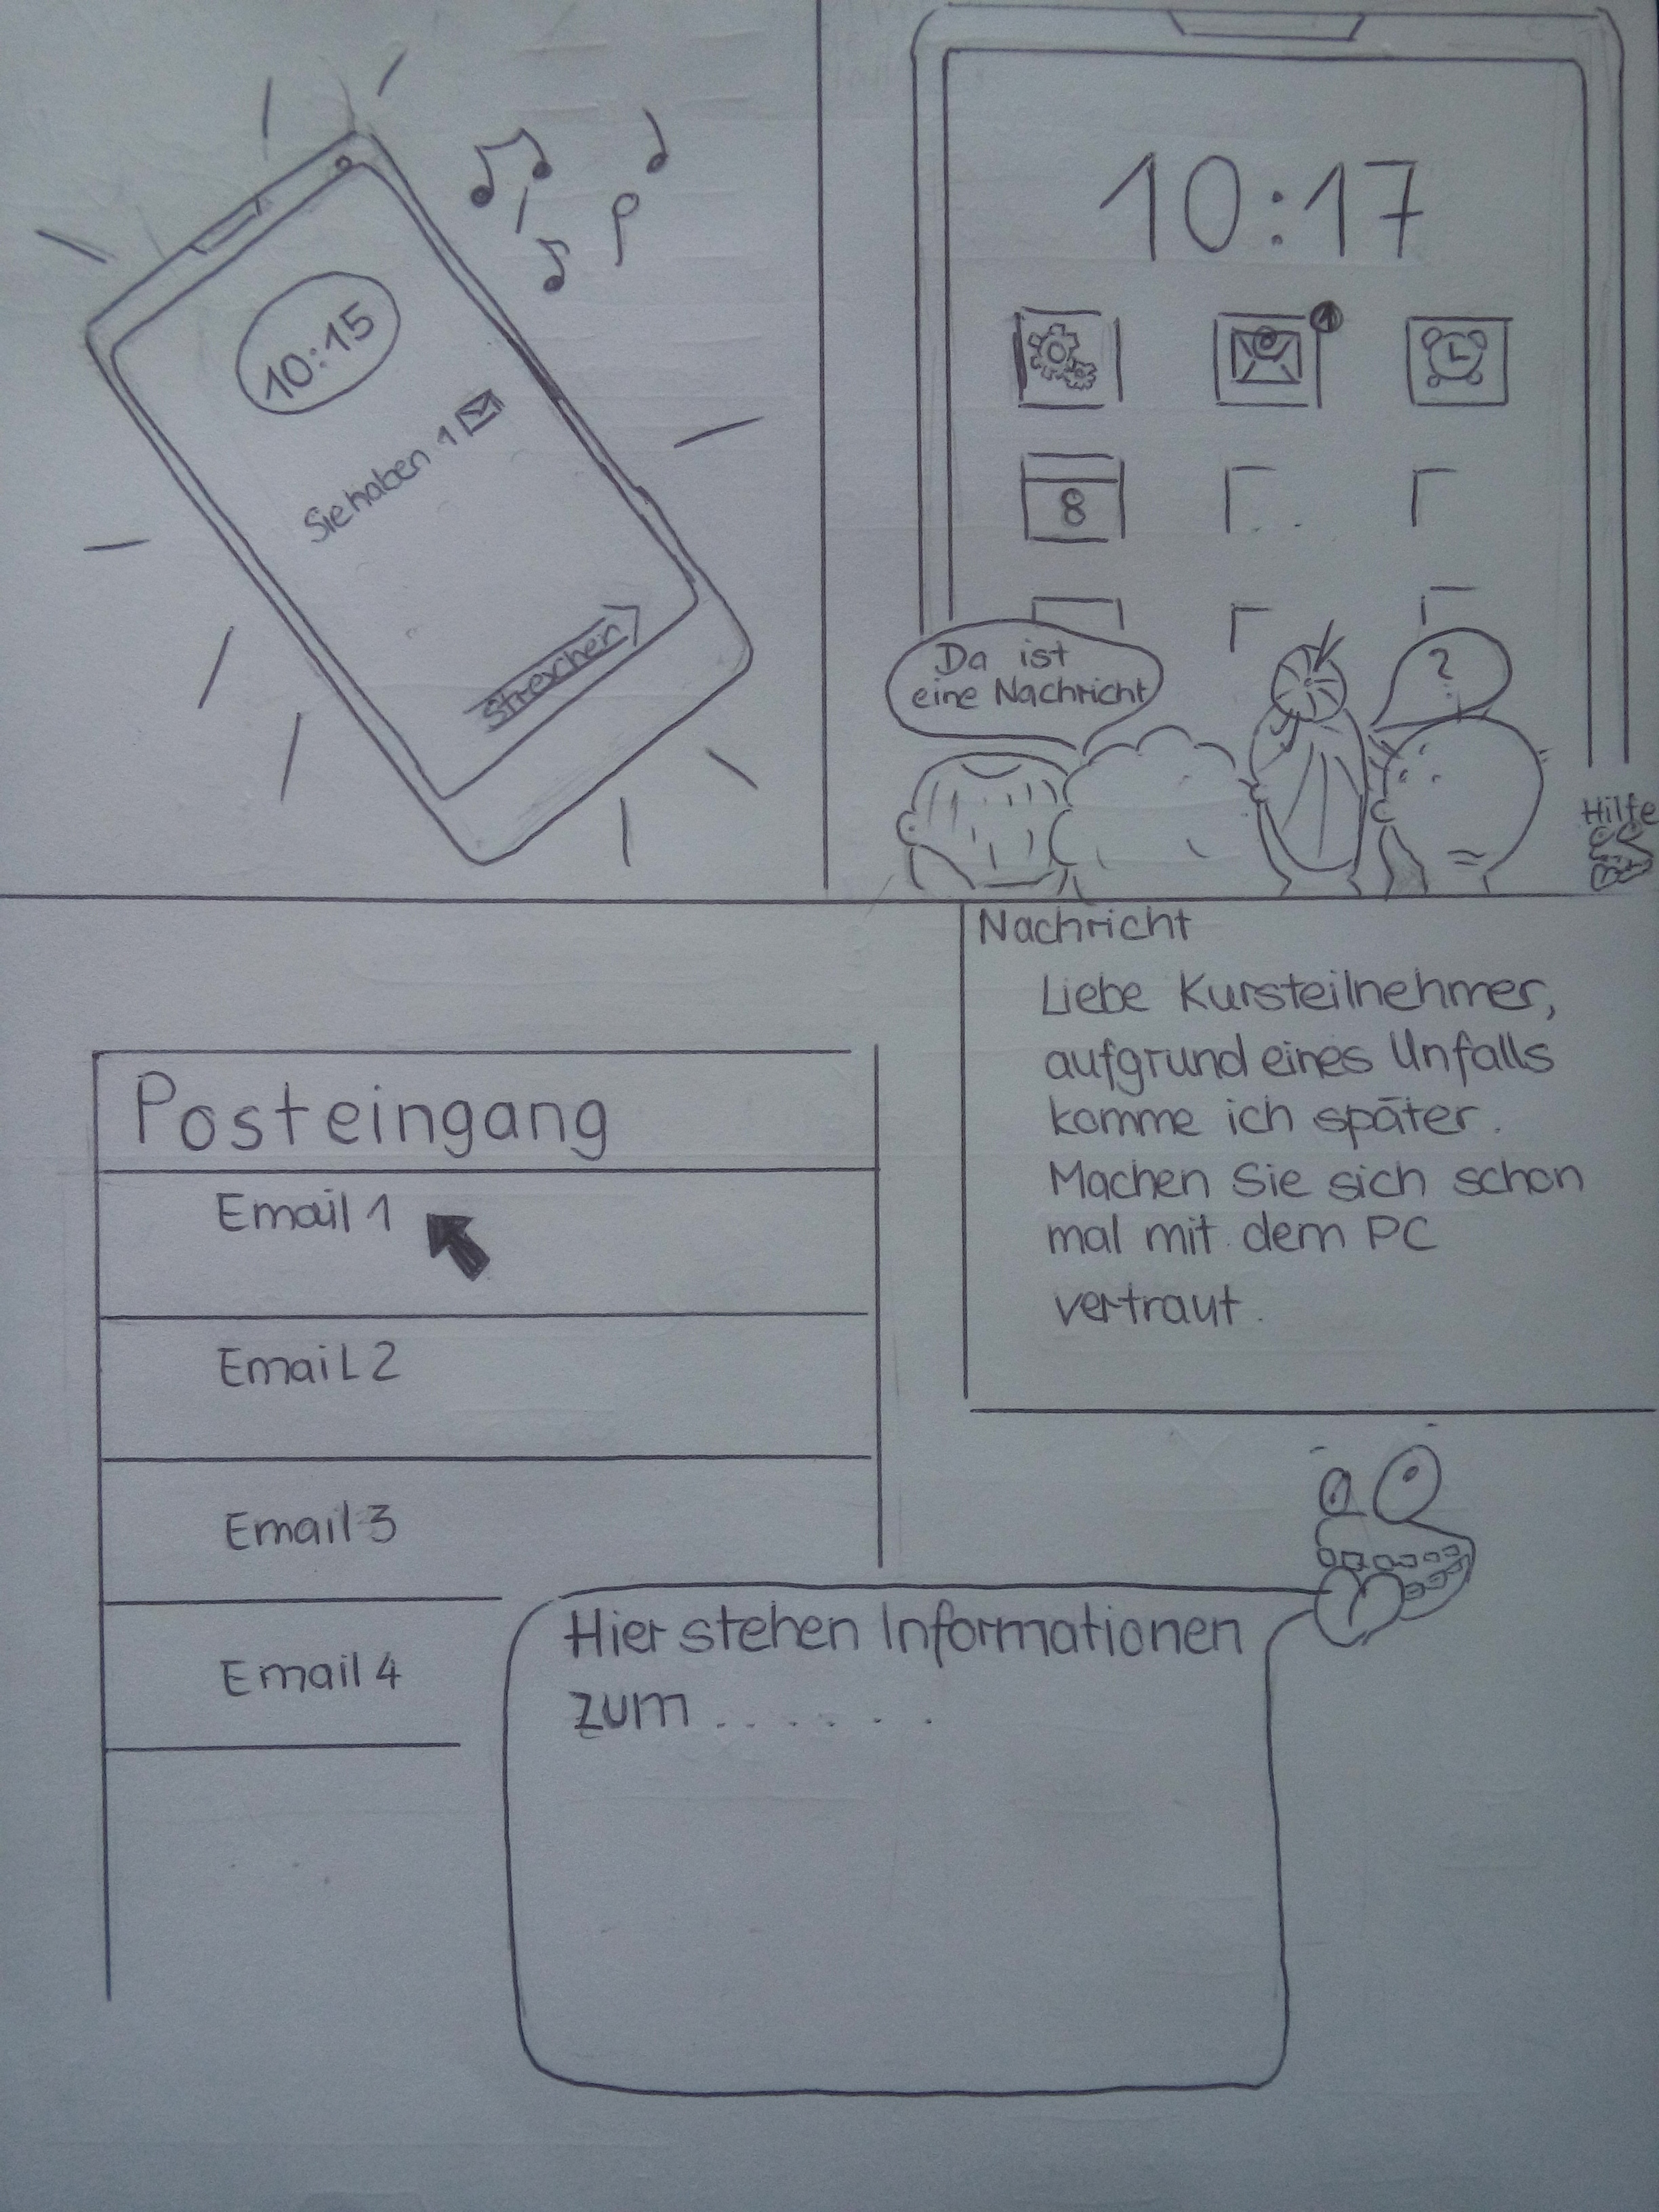 10:15
Sie haben 1
Streichen
10:17
1
8
Da ist
eine Nachricht
?
Hilfe
Posteingang
Email 1
Email 2
Email 3
Email 4
Nachricht
Liebe Kursteilnehmer,
aufgrund eines Unfalls
komme ich später.
Machen Sie sich schon
mal mit dem PC
vertraut.
Hier stehen Informationen
zum . . . . . .